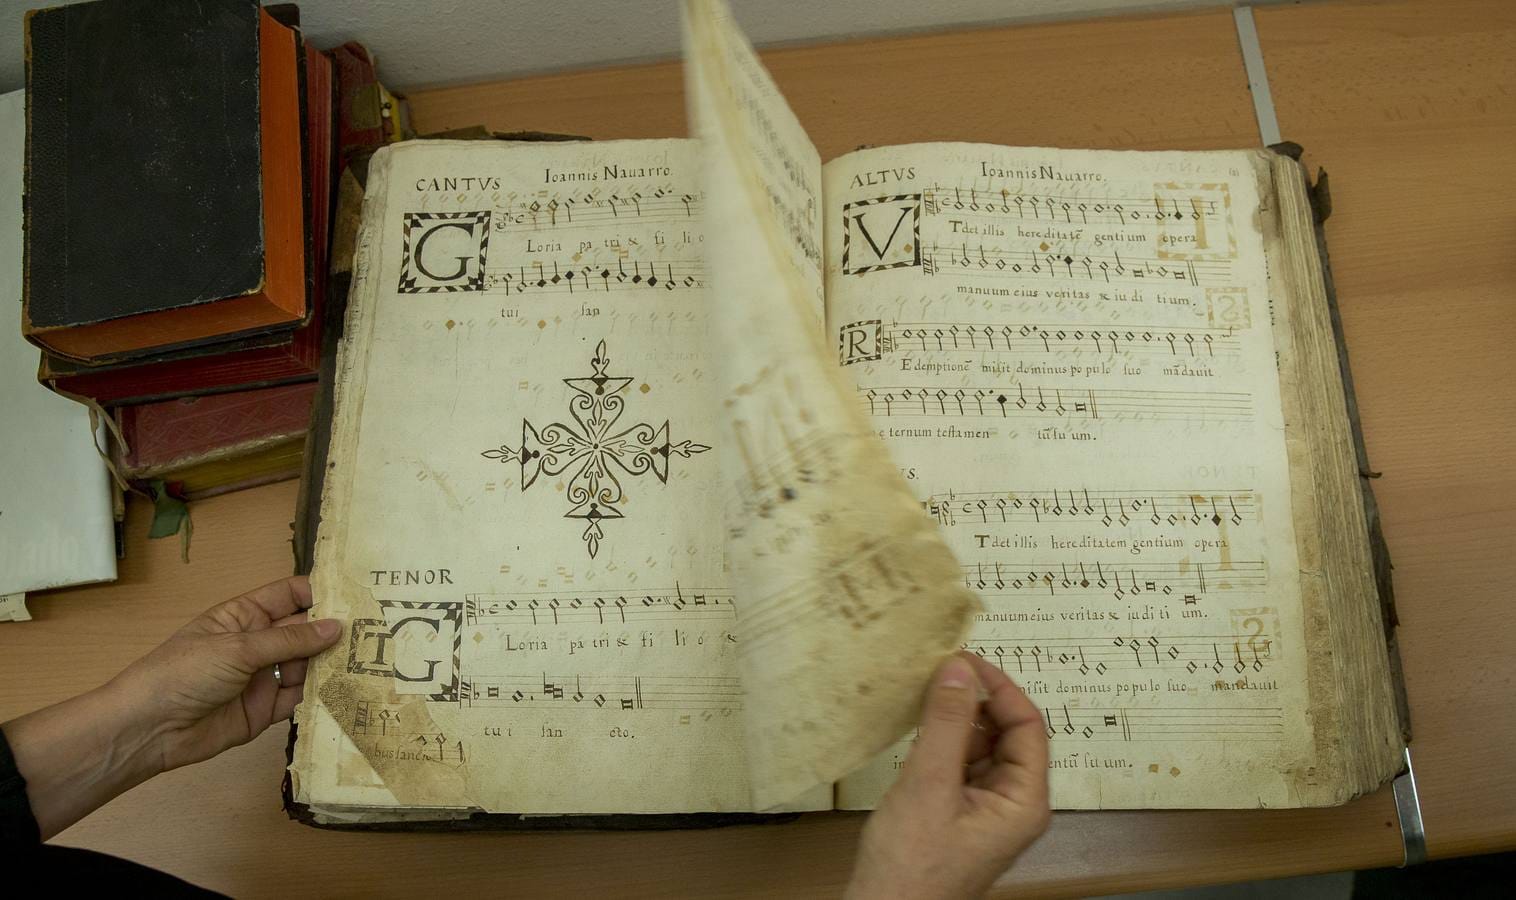 CANTVS
Ioannis Nauarro.
G
Loria pa tri & fi li o
tui san
TENOR
G
Loria pa tri & fi li o &
T
tu i san cto.
bus sancti
ALTVS
Ioannis Nauarro.
V
Tdet illis hereditatē gentium opera
manuum eius veritas & iu di tium.
R
Edemptionē misit dominus po pulo suo mādauit
ternum testamen tū su um.
VS.
Tdet illis hereditatem gentium opera
manuum eius veritas & iu di ti um.
misit dominus populo suo mandauit
entū su um.